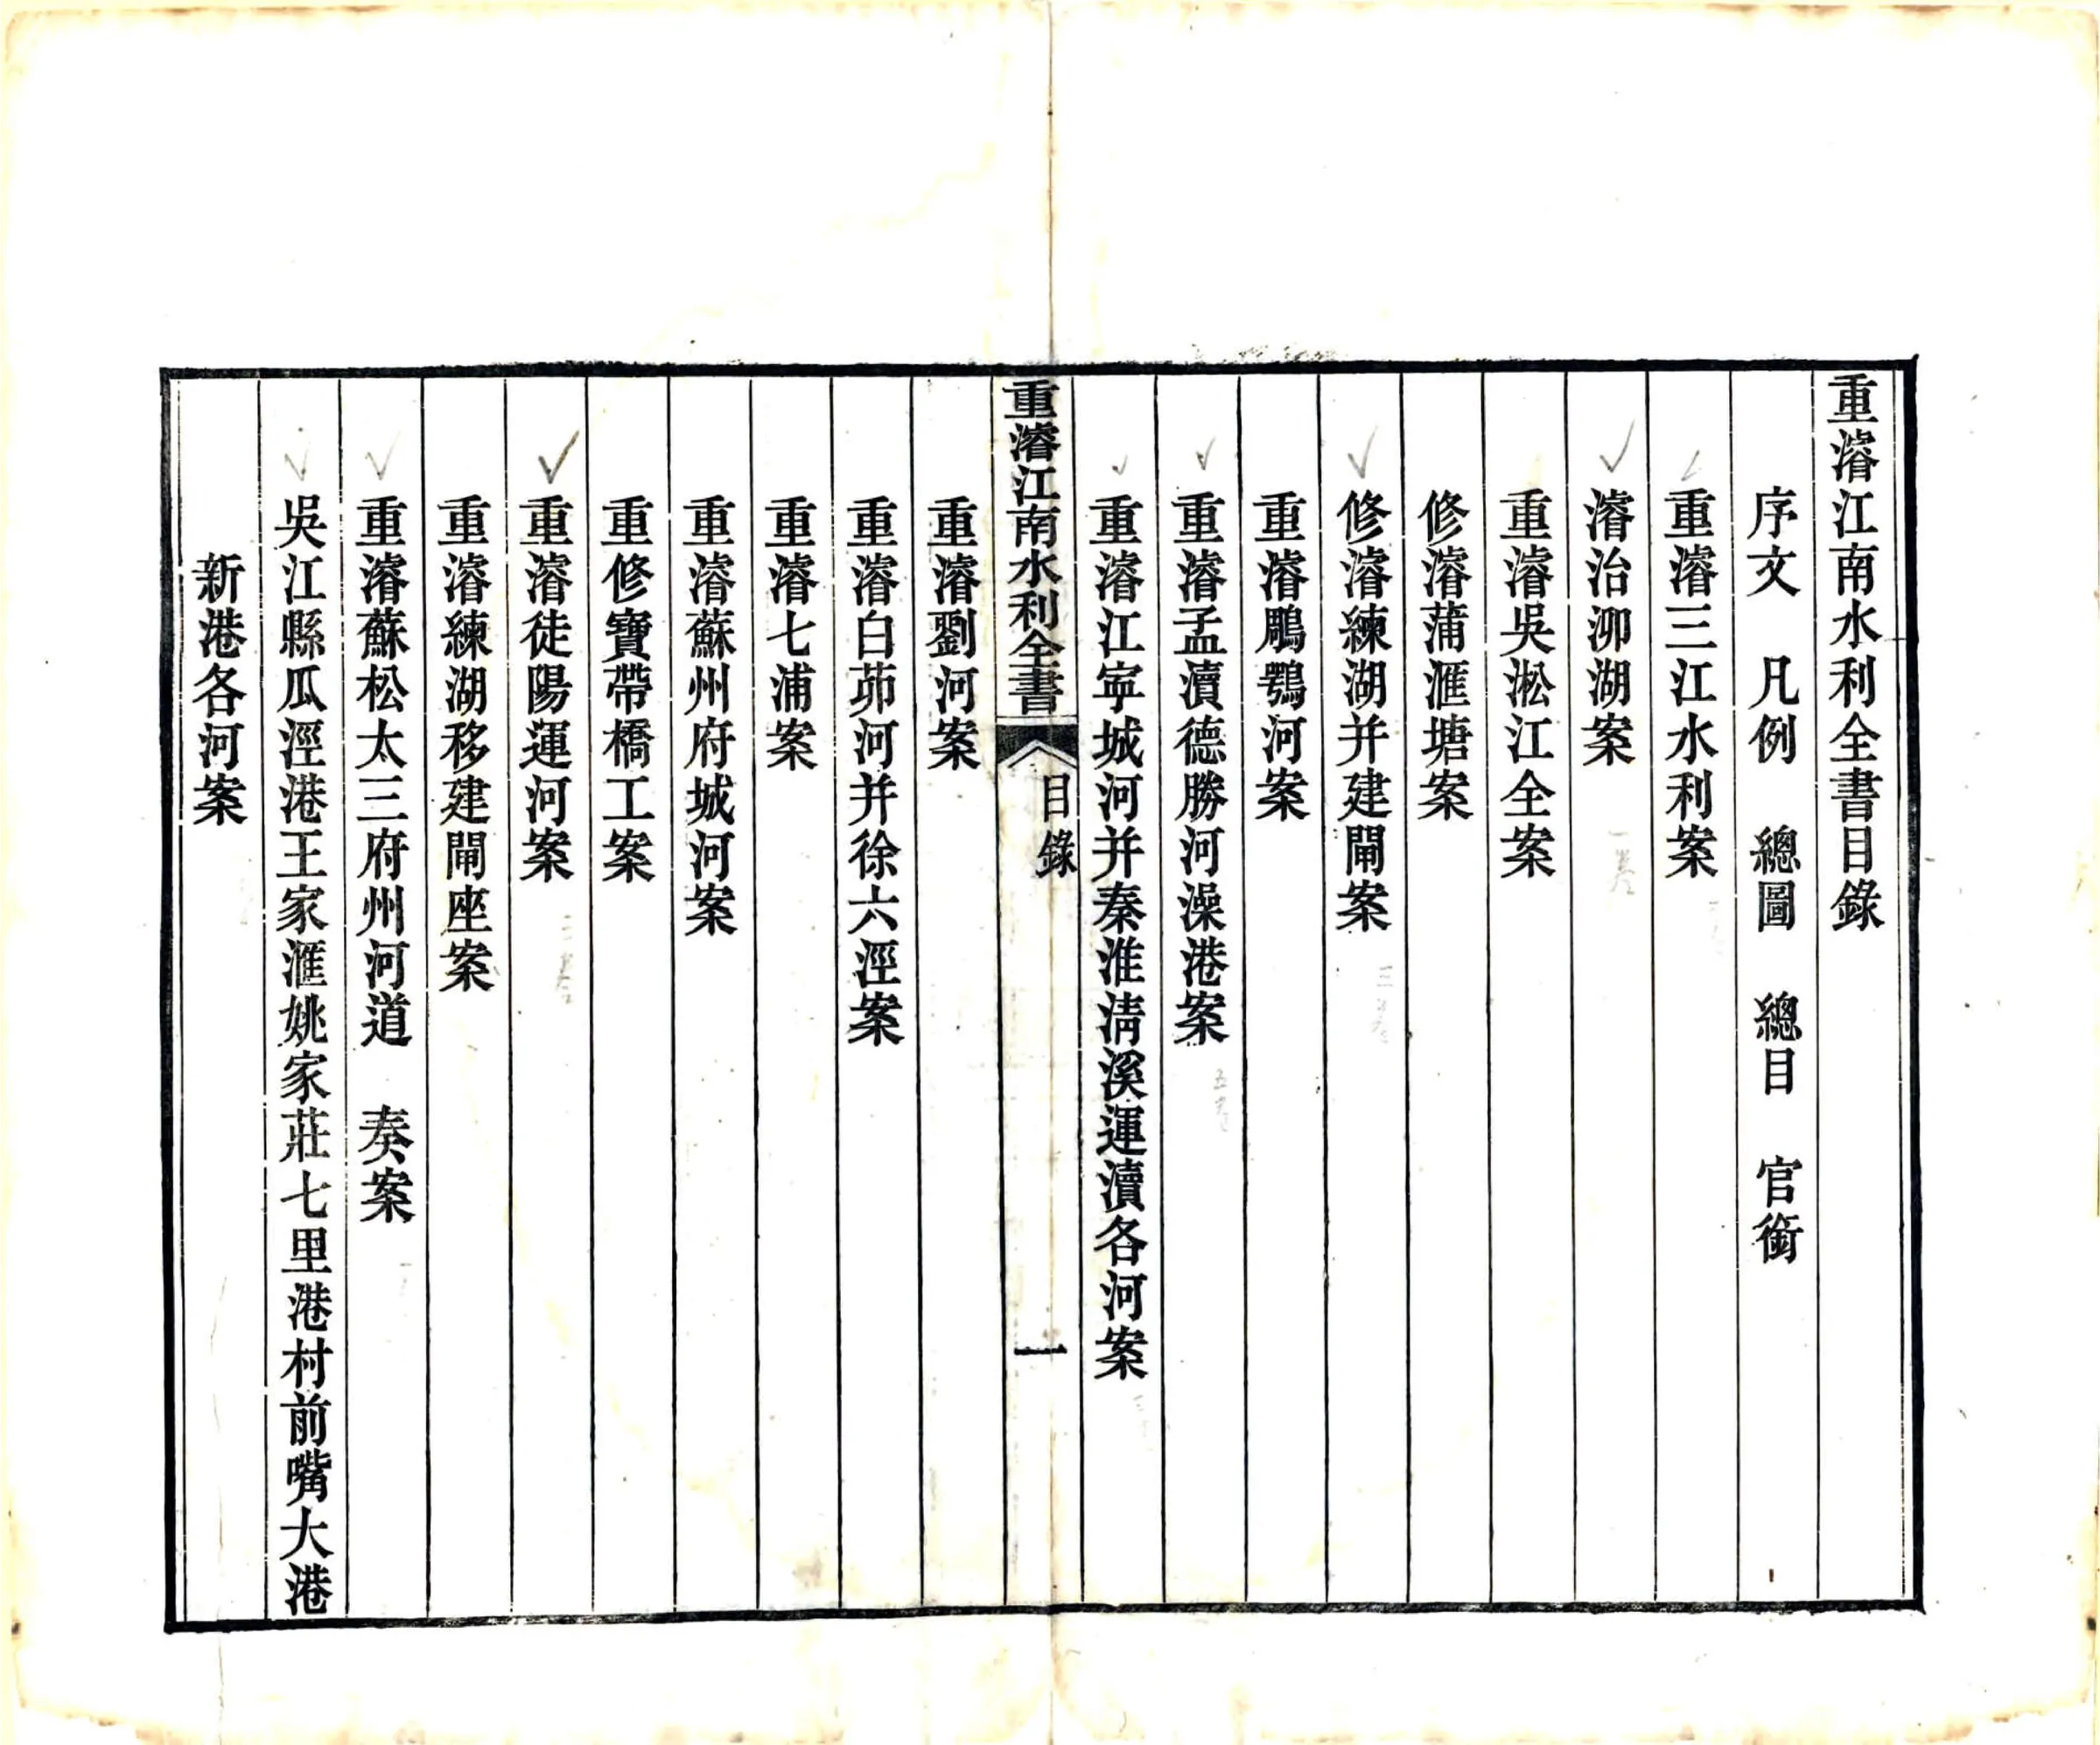 重濬江南水利全書目錄
序文　凡例　總圖　總目　官銜
重濬三江水利案
濬治泖湖案
重濬吳淞江全案
修濬蒲滙塘案
修濬練湖并建閘案
重濬鵰鶚河案
重濬孟瀆德勝河澡港案
重濬江寕城河并秦淮淸溪運瀆各河案
重濬江南水利全書
目錄
一
重濬劉河案
重濬白茆河并徐六涇案
重濬七浦案
重濬蘇州府城河案
重修寶帶橋工案
重濬徒陽運河案
重濬練湖移建閘座案
重濬蘇松太三府州河道　奏案
吳江縣瓜涇港王家滙姚家莊七里港村前嘴大港
新港各河案